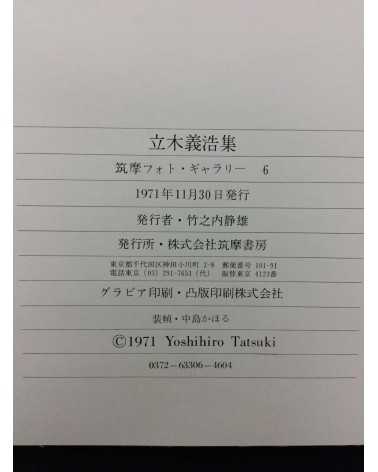 立木義浩集
筑摩フォト・ギャラリー 6
1971年11月30日発行
発行者・竹之内静雄
発行所・株式会社筑摩書房
東京都千代田区神田小川町 2-8 郵便番号 101-91
電話東京 (03) 291-7651 (代) 振替東京 4123番
グラビア印刷・凸版印刷株式会社
装幀・中島かほる
©1971 Yoshihiro Tatsuki
0372-63306-4604